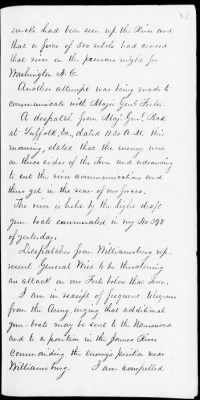 smoke had been seen up the River and
that a force of 800 rebels had crossed
that river on the previous night for
Washington N.C.
Another attempt was being made to
communicate with Major Genl. Foster.
A despatch from Maj. Genl. Peck
at Suffolk, Va., dated 11.50 A.M. this
morning, states that the enemy were
on three sides of the Town and advancing
to cut the river communication and
thus get in the rear of our forces.
The river is held by the light draft
gun-boats enumerated in my No 298
of yesterday.
Despatches from Williamsburg rep-
resent General Wise to be threatening
an attack on our Fort below that Town.
I am in receipt of frequent telegrams
from the Army urging that additional
gun-boats may be sent to the Nansemond
and to a position in the James River
commanding the enemy's position near
Williamsburg. I am compelled